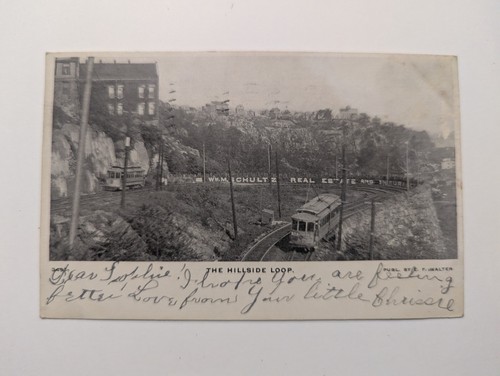 WM. SCHULTZ REAL ESTATE AND
THE HILLSIDE LOOP.
PUBL. BY
Dear Sophie! I hope You are feeling
better Love from Your little Chussie